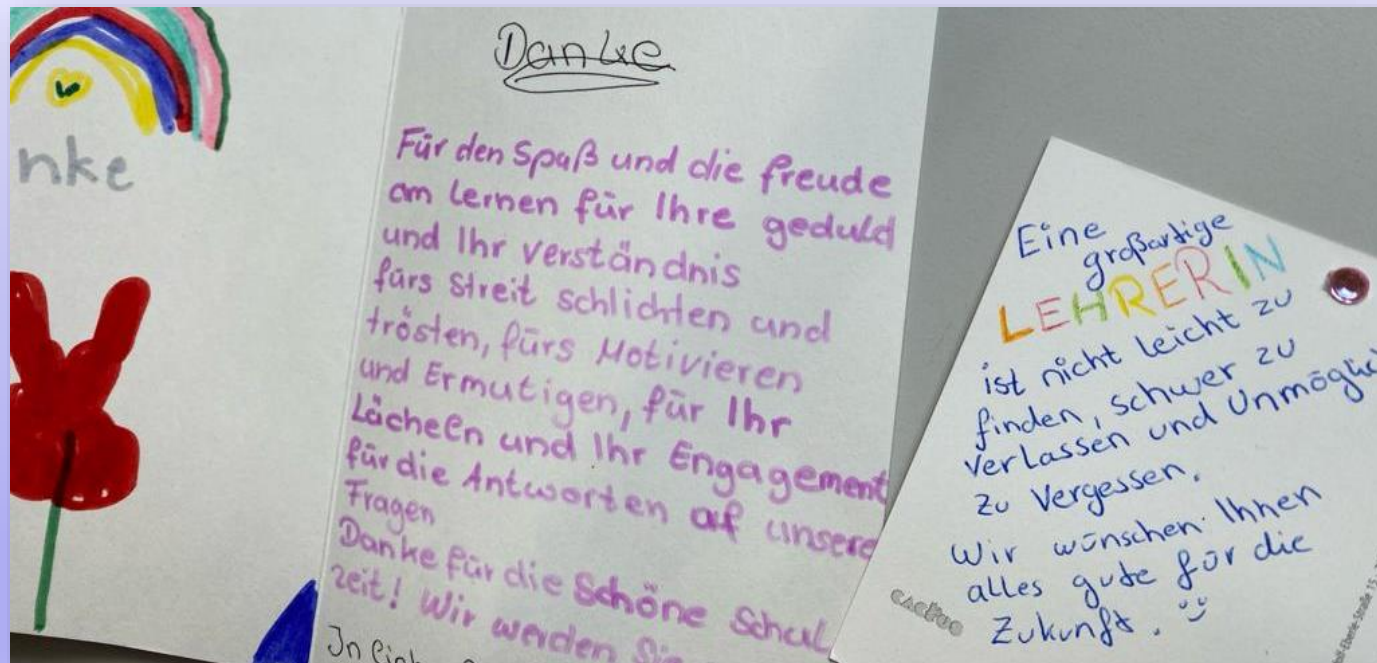 nke
Danke
Für den Spaß und die freude
am lernen für Ihre geduld
und Ihr verständnis
fürs Streit schlichten und
trösten, fürs Motivieren
und Ermutigen, für Ihr
Lächeln und Ihr Engagement
für die Antworten auf unsere
Fragen
Danke für die Schöne Schul
zeit! Wir werden Sie
In
Eine
großartige
LEHRERIN
ist nicht leicht zu
finden, schwer zu
verlassen und Unmöglic
zu Vergessen.
Wir wünschen Ihnen
alles gute für die
Zukunft.
cactus
-Eberle-Straße 15